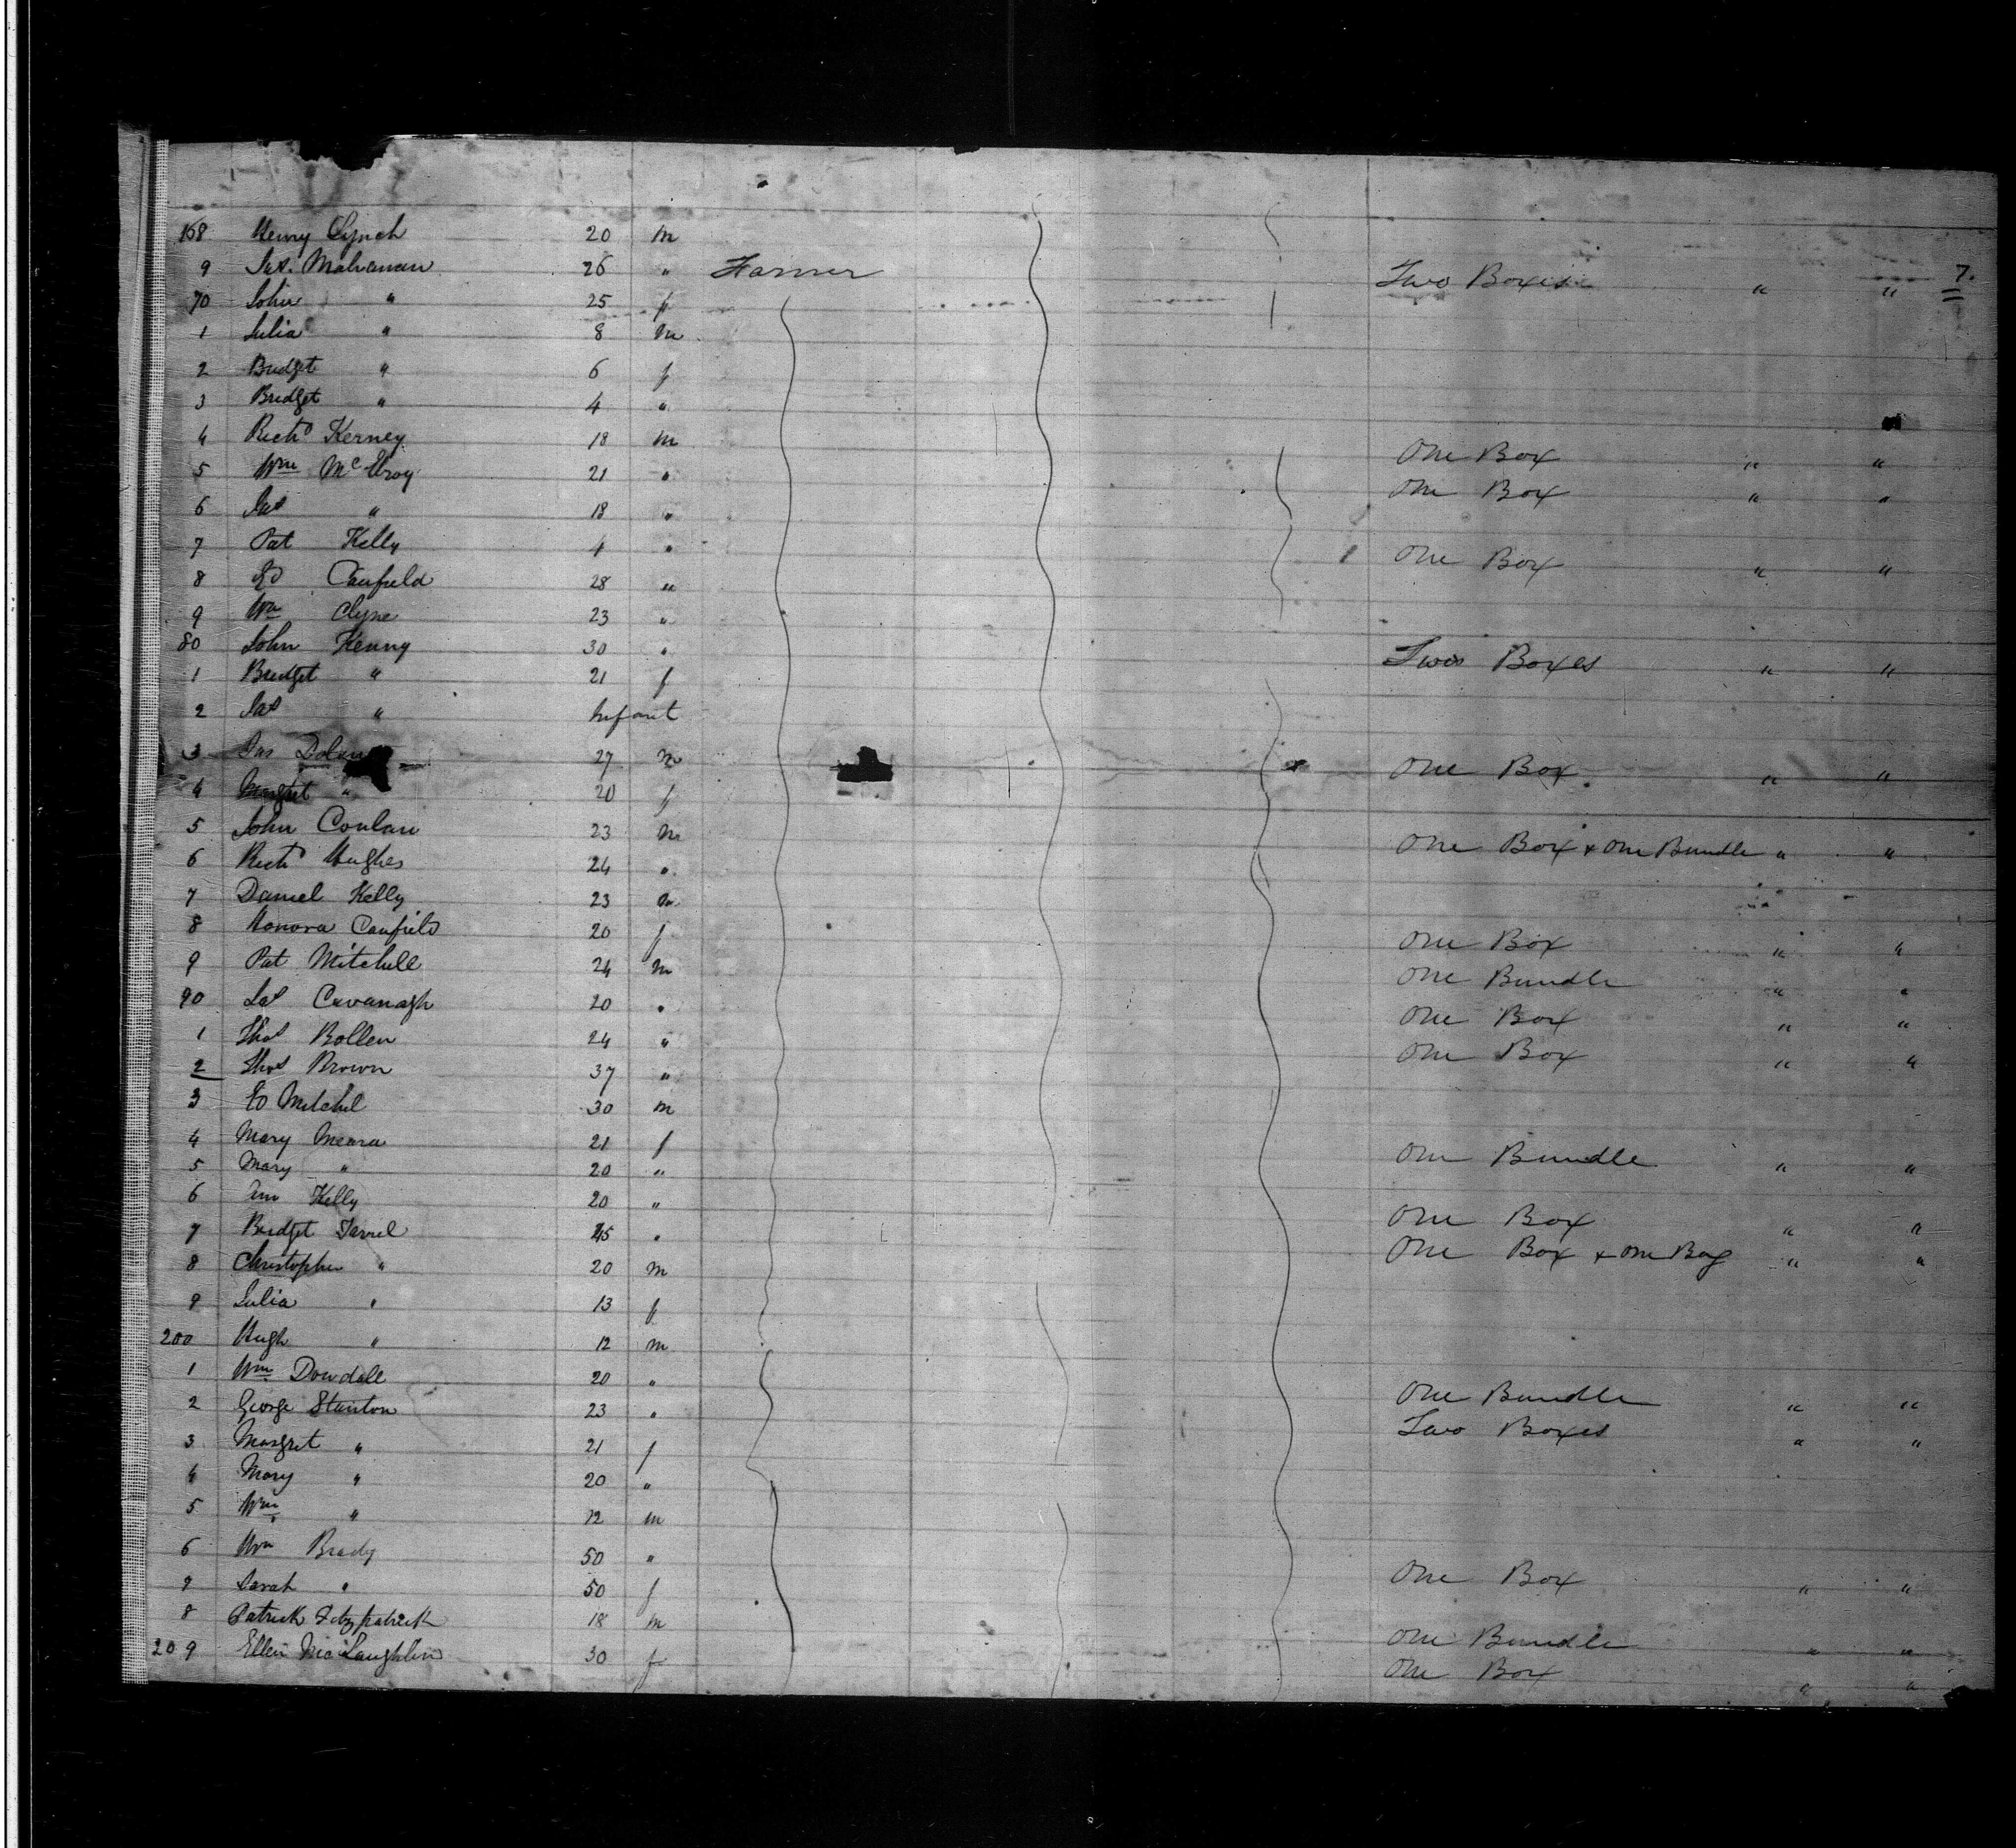 7.
168 Henry Lynch 20 m
9 Jas. Malvanan 26 " Farmer Two Boxes " "
70 John " 25 f
1 Julia " 8 m
2 Bridget " 6 f
3 Bridget " 4 "
4 Richd Kerney 18 m One Box " "
5 Wm McElroy 21 " One Box " "
6 Jas " 18 "
7 Pat Kelly 4 " One Box " "
8 Ed Caufield 28 "
9 Wm Clyne 23 "
80 John Kenny 30 " Two Boxes " "
1 Bridget " 21 f
2 Jas " Infant
3 Jas Dolan 27 m One Box " "
4 Margret " 20 f
5 John Conlan 23 m One Box & One Bundle " "
6 Richd Hughes 24 "
7 Daniel Kelly 23 m
8 Honora Caufield 20 f One Box " "
9 Pat Mitchell 24 m One Bundle " "
90 Jas Cavanagh 20 " One Box " "
1 Thos Bollen 24 " One Box " "
2 Thos Brown 37 "
3 Ed Mitchel 30 m
4 Mary Meara 21 f One Bundle " "
5 Mary " 20 "
6 Ann Kelly 20 " One Box " "
7 Bridget Farrel 45 " One Box & One Bag " "
8 Christopher " 20 m
9 Julia " 13 f
200 Hugh " 12 m
1 Wm Dowdall 20 " One Bundle " "
2 George Stanton 23 " Two Boxes " "
3 Margret " 21 f
4 Mary " 20 "
5 Wm " 12 m
6 Wm Brady 50 " One Box " "
7 Sarah " 50 f
8 Patrick Fitzpatrick 18 m One Bundle " "
209 Ellen McLaughlin 30 f One Box " "